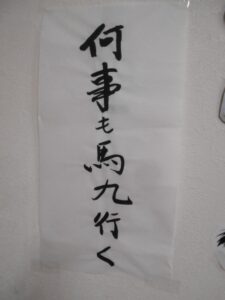 何事も馬九行く